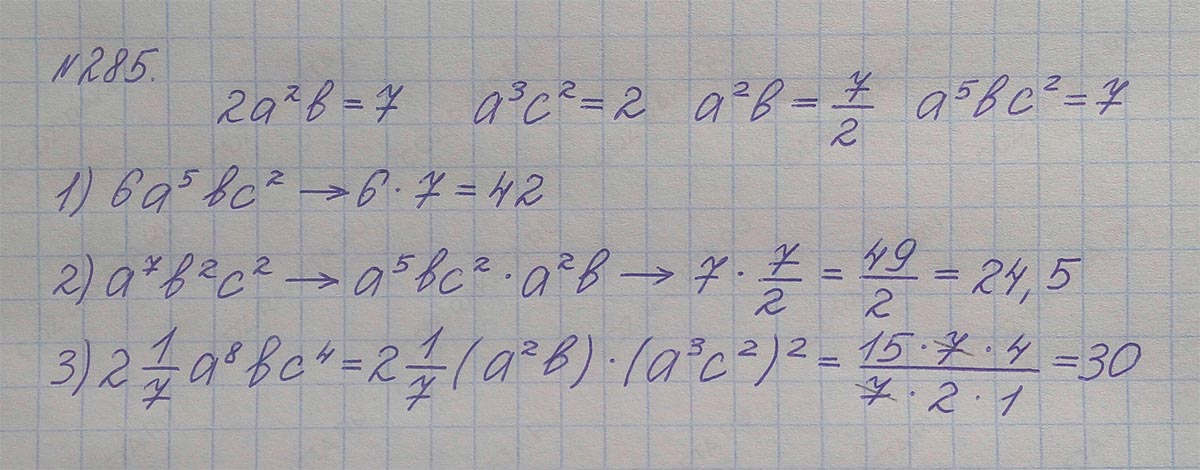 №285.
2a²b = 7 a³c² = 2 a²b = 7/2 a⁵bc² = 7
1) 6a⁵bc² → 6 · 7 = 42
2) a⁷b²c² → a⁵bc² · a²b → 7 · 7/2 = 49/2 = 24,5
3) 2 1/7 a⁸bc⁴ = 2 1/7 (a²b) · (a³c²)² = 15 · 7 · 4 / 7 · 2 · 1 = 30